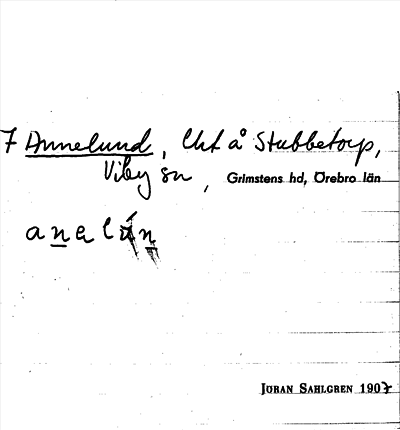 7 Annelund, Lht å Stubbetorp,
Viby sn, Grimstens hd, Örebro län
JÖRAN SAHLGREN 1907